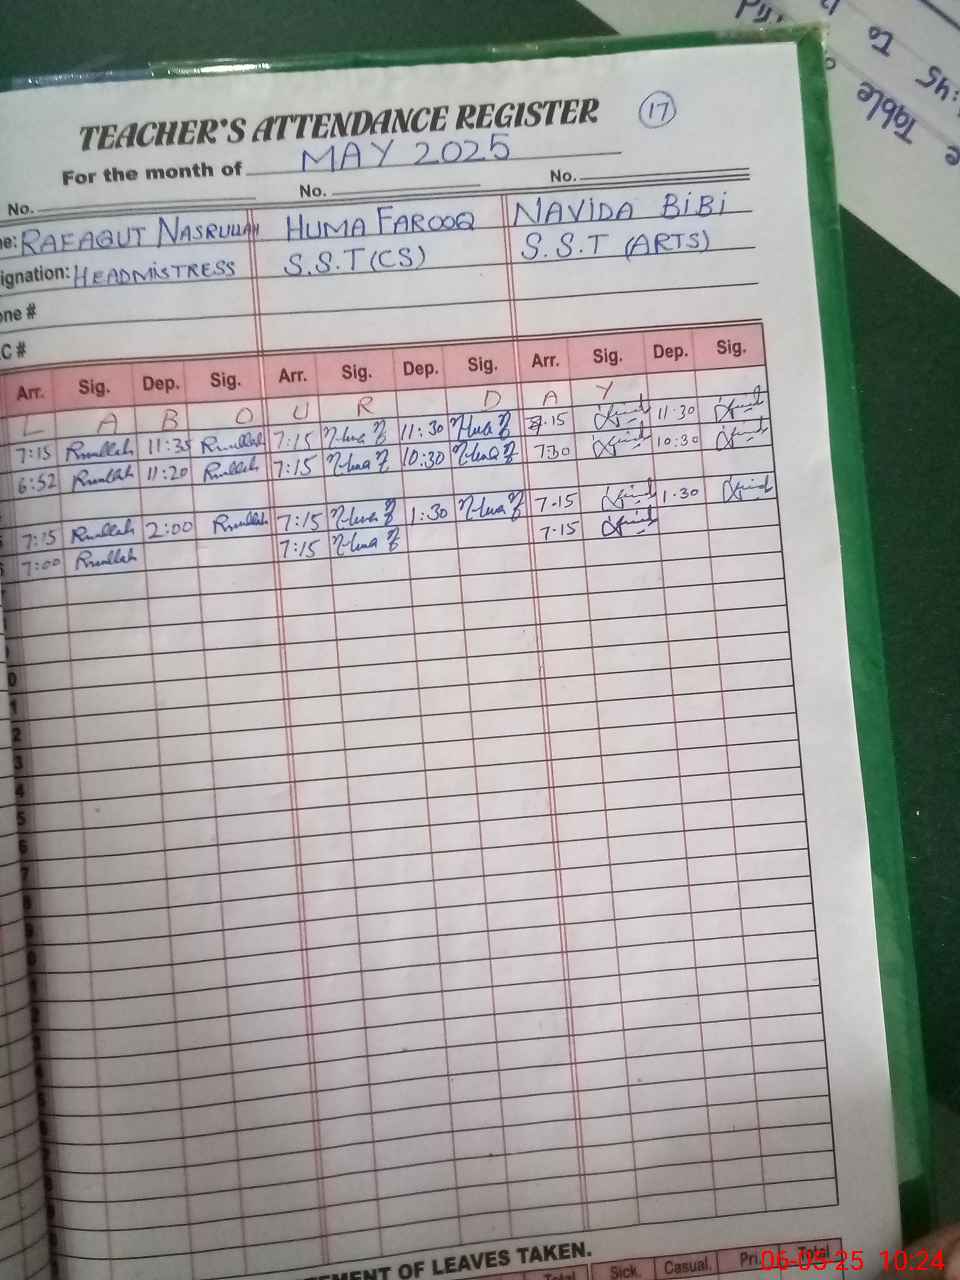 TEACHER'S ATTENDANCE REGISTER
17
For the month of MAY 2025
No. No. No.
RAFAQUT NASRULLAH HUMA FAROOQ NAVIDA BIBI
ignation: HEADMISTRESS S.S.T (CS) S.S.T (ARTS)
one #
C #
Arr. Sig. Dep. Sig. Arr. Sig. Dep. Sig. Arr. Sig. Dep. Sig.
L A B O U R D A Y
7:15 Rnullah 11:35 Rnullah 7:15 Huma F 11:30 Huma F 7.15 11:30
6:52 Rnullah 11:20 Rnullah 7:15 Huma F 10:30 Huma F 7:30 10:30
7:15 Rnullah 2:00 Rnullah 7:15 Huma F 1:30 Huma F 7.15 1.30
7:00 Rnullah 7:15 Huma F 7.15
EMENT OF LEAVES TAKEN.
Total Sick. Casual. Pri. Total
Table
to
:45
06-05-25 10:24